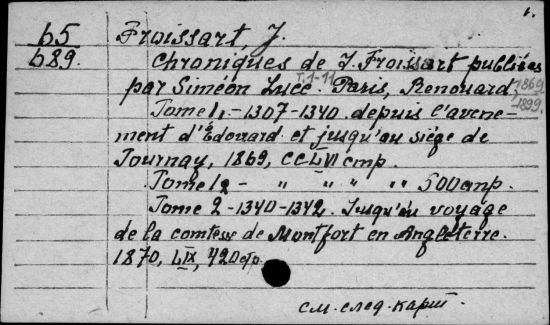 1.
б5 Froissart, J.
689. Chroniques de J. Froissart publiées
par Siméon Luce. T. 1-11 Paris, Renouard 1869-1899.
Tome 1, - 1307-1340. depuis l'avene-
ment d'Édouard et jusqu'au siège de
Tournay, 1869, CCLVI стр.
Tome 1₂ - " " " " 500 стр.
Tome 2 - 1340-1342. Jusqu'au voyage
de la comtesse de Montfort en Angleterre.
1870, LIX, 420 стр.
см. след. карт.